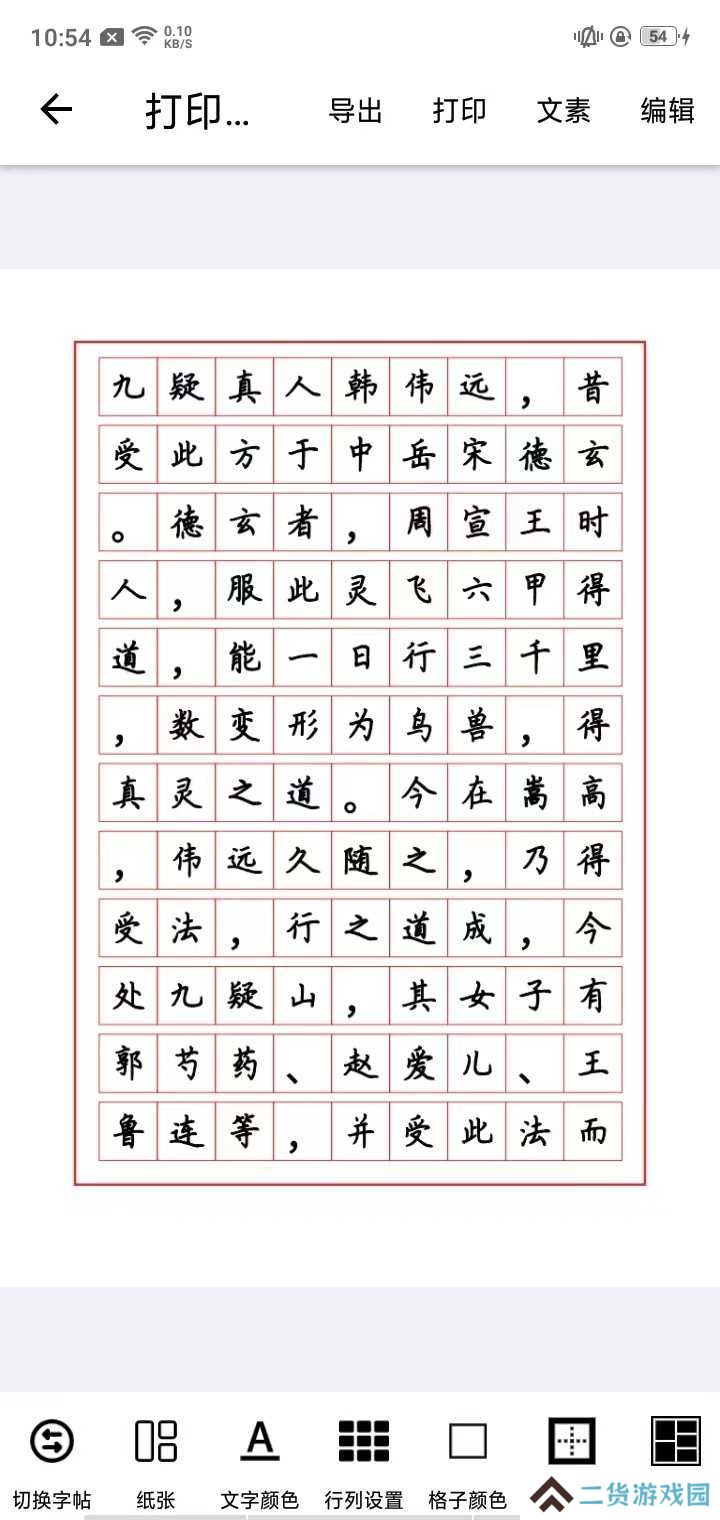 10:54 0.10 KB/S 54
打印... 导出 打印 文素 编辑
九疑真人韩伟远，昔
受此方于中岳宋德玄
。德玄者，周宣王时
人，服此灵飞六甲得
道，能一日行三千里
，数变形为鸟兽，得
真灵之道。今在嵩高
，伟远久随之，乃得
受法，行之道成，今
处九疑山，其女子有
郭芍药、赵爱儿、王
鲁连等，并受此法而
切换字帖 纸张 文字颜色 行列设置 格子颜色 二货游戏园